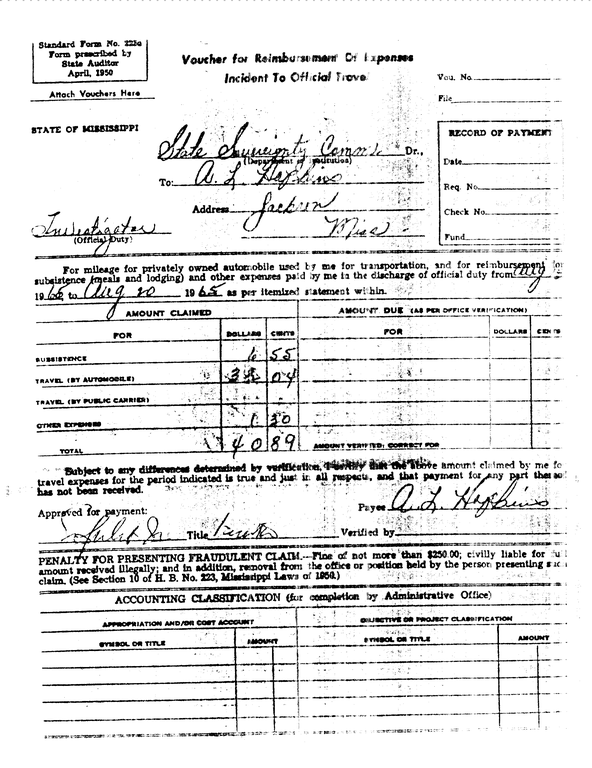 Standard Form No. 223c
Form prescribed by
State Auditor
April, 1950
Attach Vouchers Here
Voucher for Reimbursement Of Expenses
Incident To Official Travel
Vou. No.
File
STATE OF MISSISSIPPI
State Sovereignty Comm. Dr.,
(Department or Institution)
To: A. L. Hopkins
Address Jackson
Miss
Investigator
(Official Duty)
RECORD OF PAYMENT
Date
Req. No.
Check No.
Fund
For mileage for privately owned automobile used by me for transportation, and for reimbursement for
subsistence (meals and lodging) and other expenses paid by me in the discharge of official duty from Aug
1965 to Aug 20 1965 as per itemized statement within.
AMOUNT CLAIMED
AMOUNT DUE (AS PER OFFICE VERIFICATION)
FOR DOLLARS CENTS FOR DOLLARS CENTS
SUBSISTENCE 6 55
TRAVEL (BY AUTOMOBILE) 04
TRAVEL (BY PUBLIC CARRIER)
OTHER EXPENSES 1 30
TOTAL 40 89 AMOUNT VERIFIED; CORRECT FOR
Subject to any differences determined by verification, I certify that the above amount claimed by me fo
travel expenses for the period indicated is true and just in all respects, and that payment for any part thereof
has not been received.
Approved for payment:
Payee A. L. Hopkins
Title
Verified by
PENALTY FOR PRESENTING FRAUDULENT CLAIM.—Fine of not more than $250.00; civilly liable for full
amount received illegally; and in addition, removal from the office or position held by the person presenting such
claim. (See Section 10 of H. B. No. 223, Mississippi Laws of 1950.)
ACCOUNTING CLASSIFICATION (for completion by Administrative Office)
APPROPRIATION AND/OR COST ACCOUNT
OBJECTIVE OR PROJECT CLASSIFICATION
SYMBOL OR TITLE AMOUNT SYMBOL OR TITLE AMOUNT